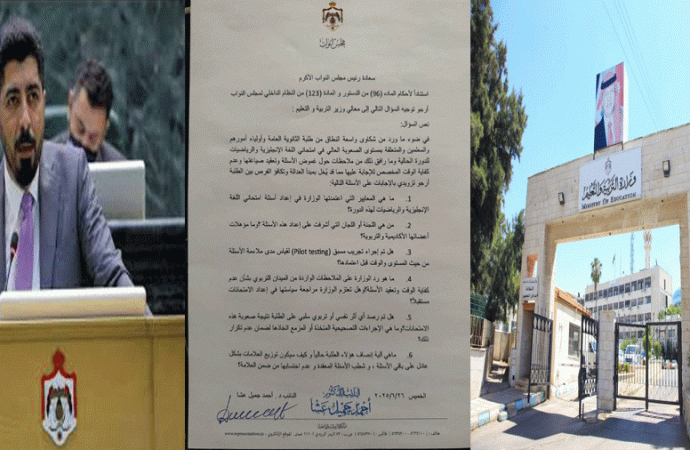 مجلس النواب
سعادة رئيس مجلس النواب الأكرم
استناداً لأحكام المادة (96) من الدستور و المادة (123) من النظام الداخلي لمجلس النواب
أرجو توجيه السؤال التالي إلى معالي وزير التربية و التعليم :
نص السؤال:
في ضوء ما ورد من شكاوى واسعة النطاق من طلبة الثانوية العامة وأولياء أمورهم
والمعلمين والمتعلقة بمستوى الصعوبة العالي في امتحاني اللغة الإنجليزية والرياضيات
للدورة الحالية وما رافق ذلك من ملاحظات حول غموض الأسئلة وتعقيد صياغتها وعدم
كفاية الوقت المخصص للإجابة عليها مما قد يُخل بمبدأ العدالة وتكافؤ الفرص بين الطلبة
أرجو تزويدي بالإجابات على الأسئلة التالية:
1. ما هي المعايير التي اعتمدتها الوزارة في إعداد أسئلة امتحاني اللغة
الإنجليزية والرياضيات لهذه الدورة؟
2. من هي اللجنة أو اللجان التي أشرفت على إعداد هذه الأسئلة؟وما مؤهلات
أعضائها الأكاديمية والتربوية؟
3. هل تم إجراء تجريب مسبق (Pilot testing) لقياس مدى ملاءمة الأسئلة
من حيث المستوى والوقت قبل اعتمادها؟
4. ما هو رد الوزارة على الملاحظات الواردة من الميدان التربوي بشأن عدم
كفاية الوقت وتعقيد الأسئلة؟وهل تعتزم الوزارة مراجعة سياستها في إعداد الامتحانات
مستقبلاً؟
5. هل تم رصد أي أثر نفسي أو تربوي سلبي على الطلبة نتيجة صعوبة هذه
الامتحانات؟وما هي الإجراءات التصحيحية المتخذة أو المزمع اتخاذها لضمان عدم تكرار
ذلك؟
6. ماهي الية إنصاف هؤلاء الطلبة حالياً و كيف سيكون توزيع العلامات بشكل
عادل على باقي الأسئلة ، و شطب الأسئلة المعقدة و عدم احتسابها من ضمن العلامة؟
الخميس ٢٠٢٥/٦/٢٦
النائب د. أحمد جميل عشا
النائب الدكتور
أحمد جميل عشا
وزارة التربية والتعليم
MINISTRY OF EDUCATION